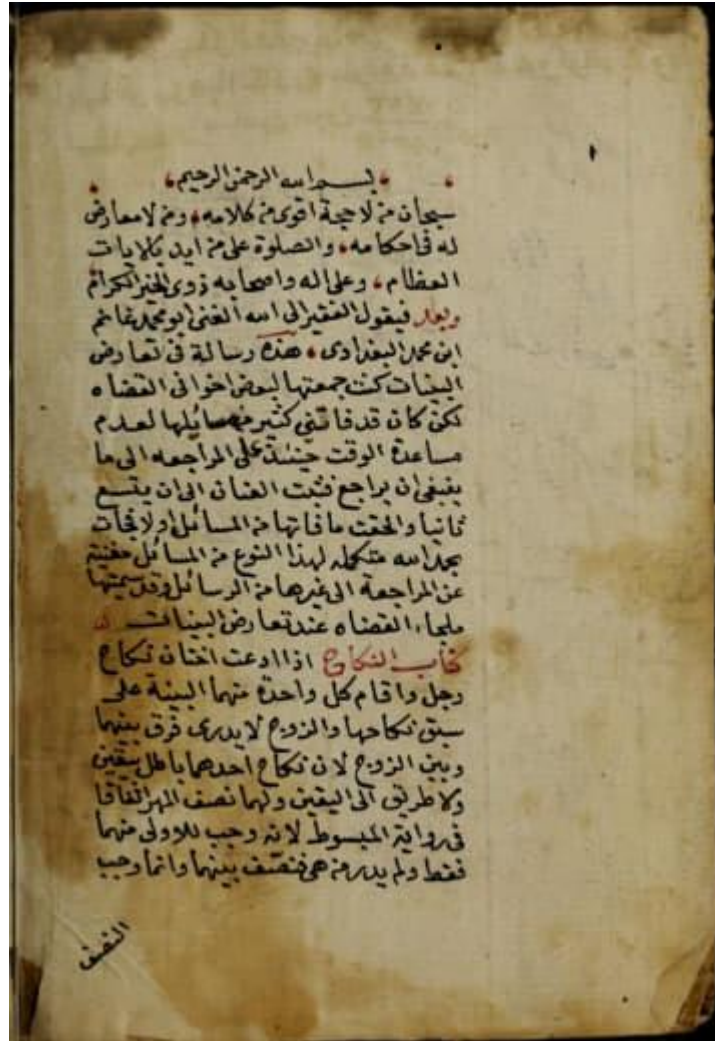 بسم الله الرحمن الرحيم
سبحان من لا حجة اقوى من كلامه ومن لا معارض
له في احكامه والصلوة على من ايد بالايات
العظام وعلى اله واصحابه ذوى الخير الكرام
وبعد فيقول الفقير الى الله الغنى ابو محمد غانم
ابن محمد البغدادى هذه رسالة في تعارض
البينات كنت جمعتها لبعض اخوانى القضاه
لكن كان قد فاتني كثير من مسايلها لعدم
مساعدة الوقت حينئذ على المراجعه الى ما
ينبغى ان يراجع فثنيت العنان الى ان يتسع
ثانيا والحقت ما فاتها من المسائل اولا فجات
بحمد الله متكمله لهذا النوع من المسائل مغنية
عن المراجعة الى غيرها من الرسائل وقد سميتها
ملجاء القضاه عند تعارض البينات
كتاب النكاح اذا ادعت اختان نكاح
رجل واقام كل واحدة منهما البينة على
سبق نكاحها والزوج لا يدرى فرق بينهما
وبين الزوج لان نكاح احدهما باطل بيقين
ولا طريق الى اليقين ولهما نصف المهر اتفاقا
فى رواية المبسوط لانه وجب للاولى منهما
فقط ولم يدر من هى فتنصف بينهما وانما وجب
النصف